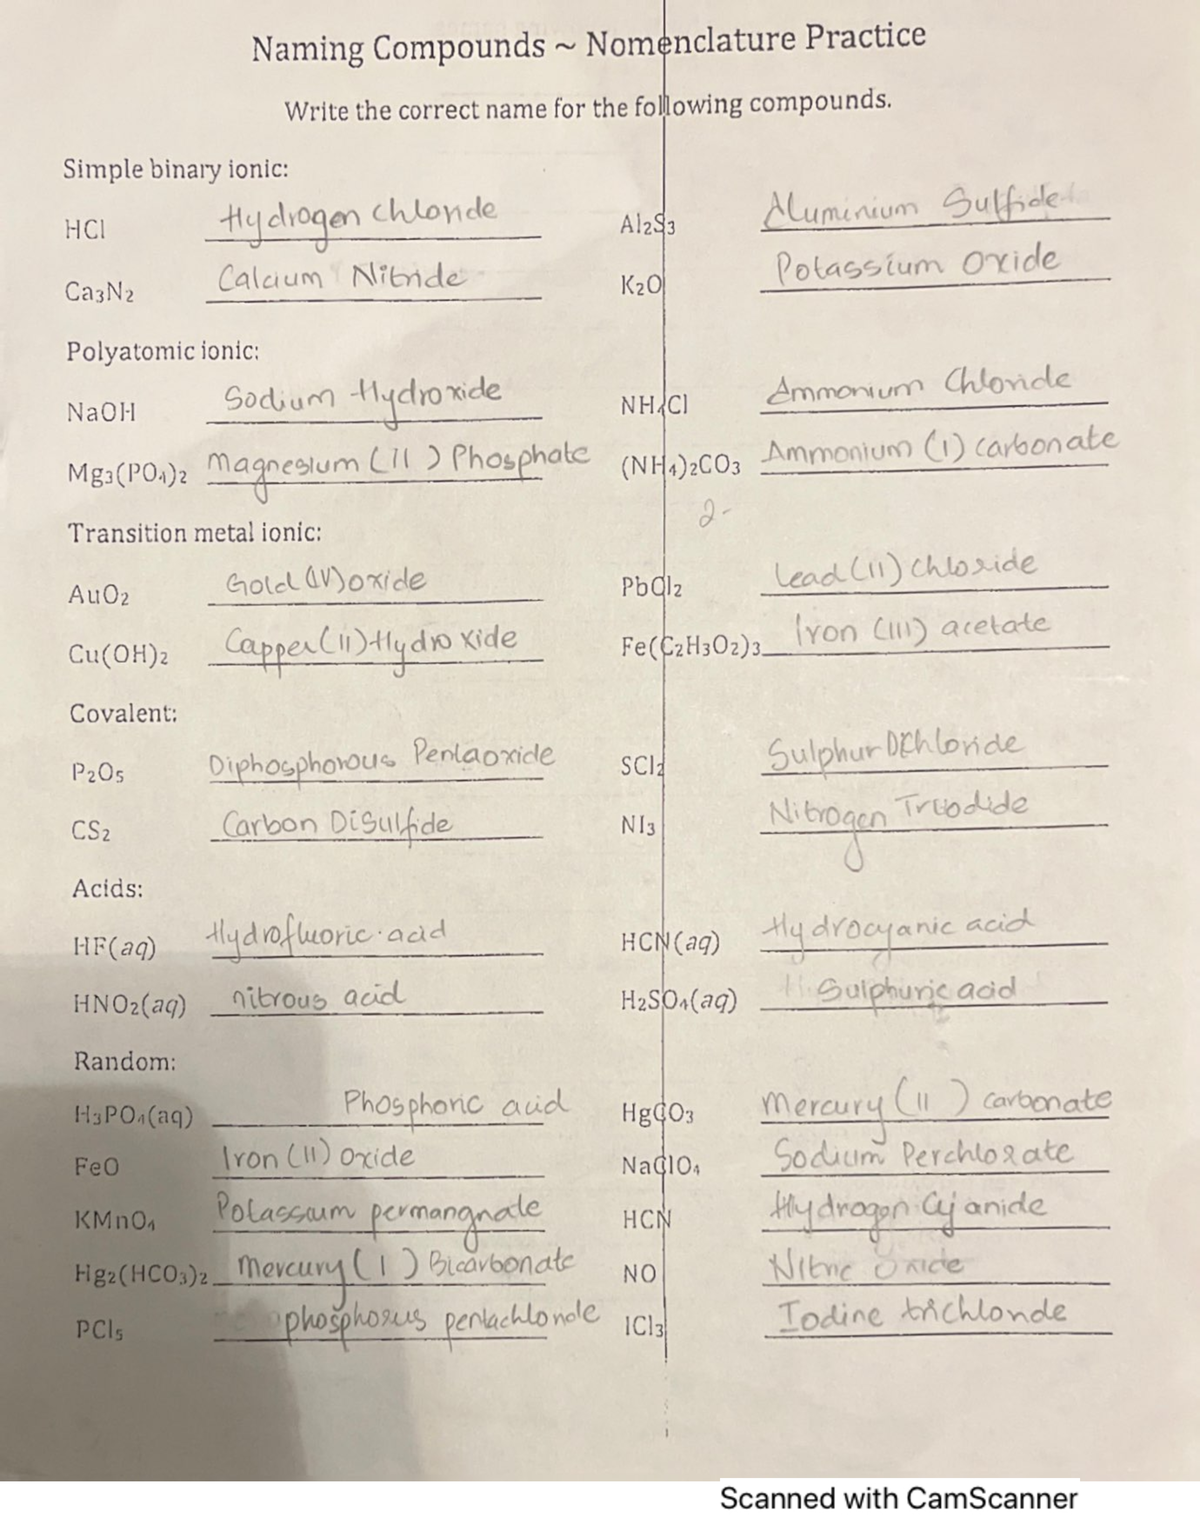 Naming Compounds ~ Nomenclature Practice
Write the correct name for the following compounds.
Simple binary ionic:
HCl Hydrogen chloride Al2S3 Aluminium Sulfide
Ca3N2 Calcium Nitride K2O Potassium Oxide
Polyatomic ionic:
NaOH Sodium Hydroxide NH4Cl Ammonium Chloride
Mg3(PO4)2 Magnesium (II) Phosphate (NH4)2CO3 Ammonium (I) carbonate
2-
Transition metal ionic:
AuO2 Gold (IV) oxide PbCl2 Lead (II) chloride
Cu(OH)2 Capper (II) Hydroxide Fe(C2H3O2)3 Iron (III) acetate
Covalent:
P2O5 Diphosphorous Pentaoxide SCl2 Sulphur DIChloride
CS2 Carbon DiSulfide NI3 Nitrogen Triiodide
Acids:
HF(aq) Hydrofluoric acid HCN(aq) Hydrocyanic acid
HNO2(aq) nitrous acid H2SO4(aq) Sulphuric acid
Random:
H3PO4(aq) Phosphoric acid HgCO3 Mercury (II) carbonate
FeO Iron (II) Oxide NaClO4 Sodium Perchlorate
KMnO4 Potassium permangnate HCN Hydrogen Cyanide
Hg2(HCO3)2 Mercury (I) Bicarbonate NO Nitric Oxide
PCl5 phosphorus pentachloride ICl3 Iodine trichloride
Scanned with CamScanner